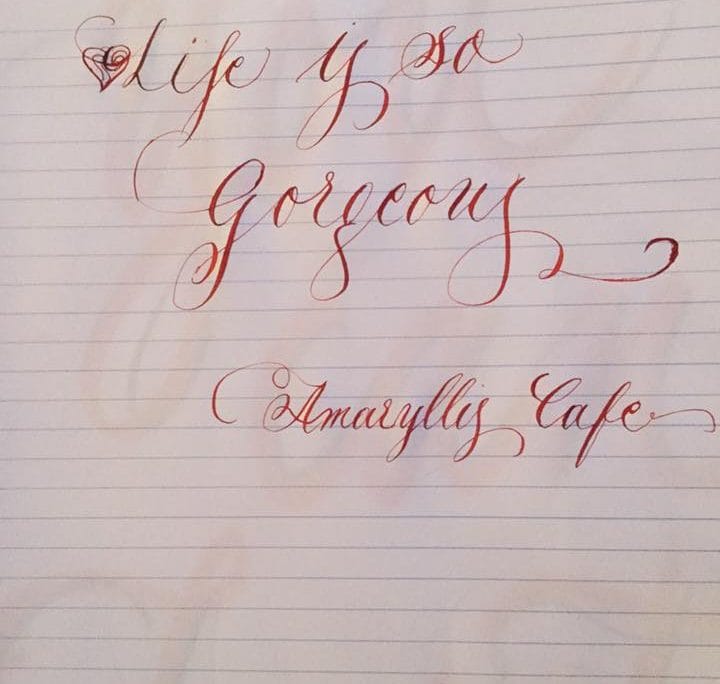 Life is so
Gorgeous
Amaryllis Cafe